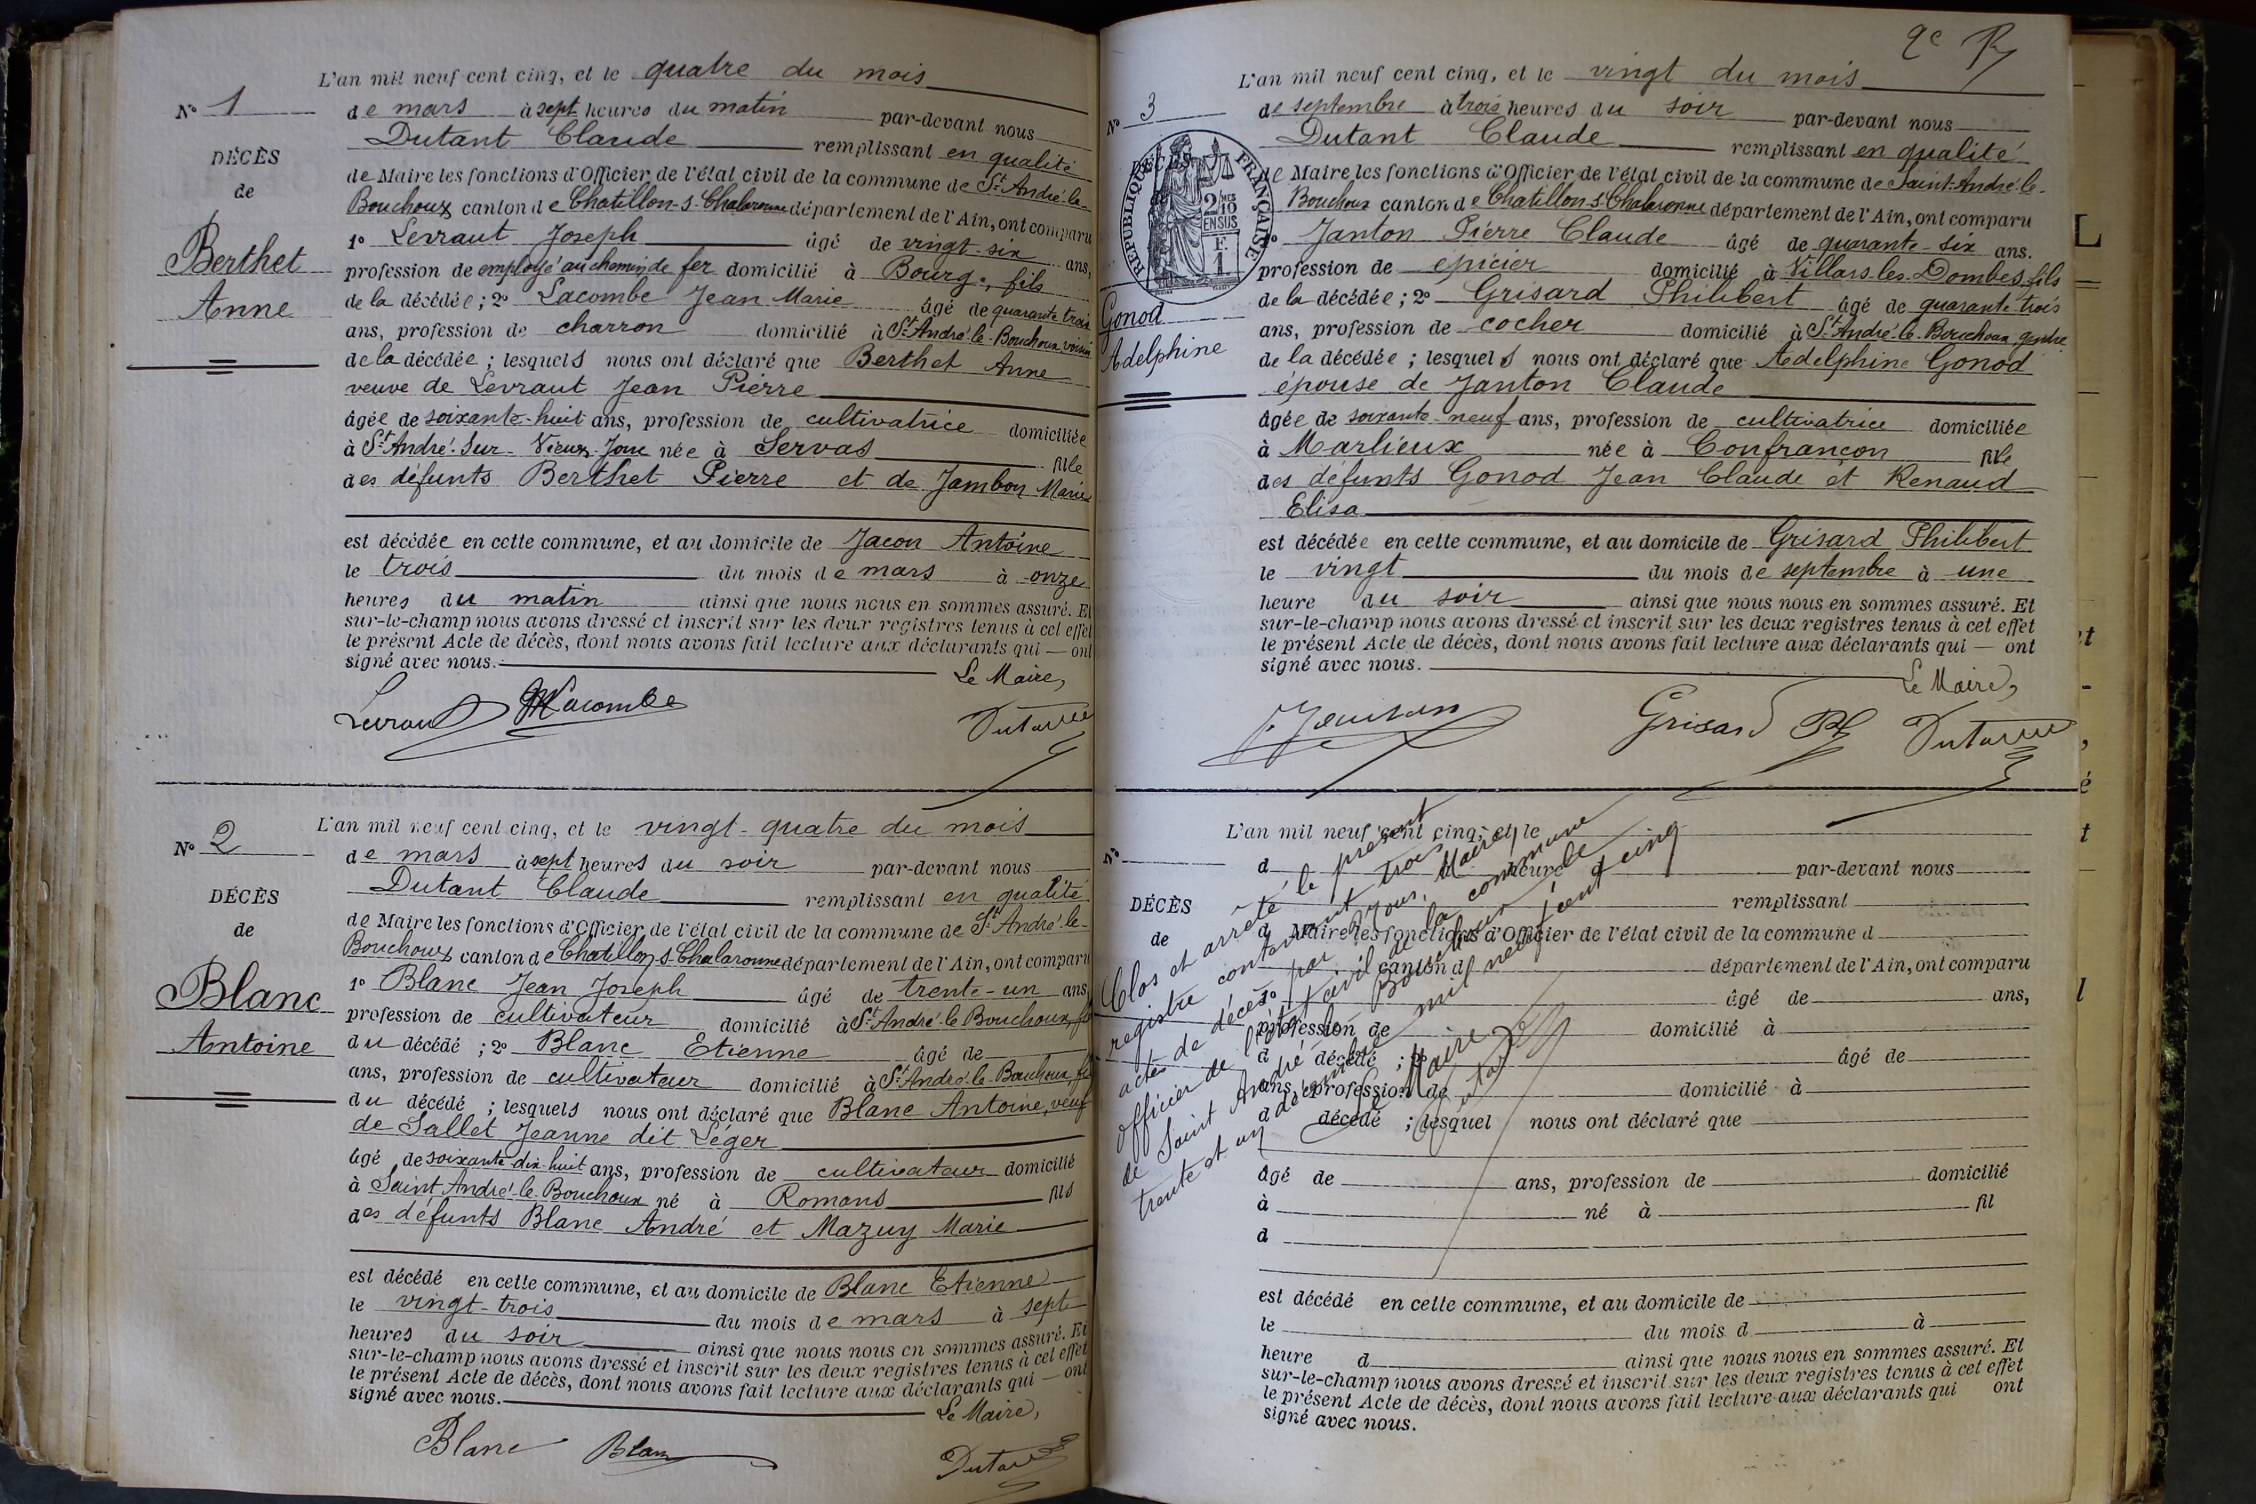 L'an mil neuf cent cinq, et le quatre du mois
N° 1
de mars à sept heures du matin par-devant nous
Dutant Claude remplissant en qualité
DÉCÈS
de
de Maire les fonctions d'Officier de l'état civil de la commune de St André-le-
Bouchoux canton de Chatillon-s-Chalaronne département de l'Ain, ont comparu
Berthet
Anne
1° Levraut Joseph âgé de vingt-six ans,
profession de employé au chemin de fer domicilié à Bourg, fils
de la décédée ; 2° Lacombe Jean Marie âgé de quarante trois
ans, profession de charron domicilié à St André-le-Bouchoux, voisin
de la décédée ; lesquels nous ont déclaré que Berthet Anne
veuve de Levraut Jean Pierre
âgée de soixante-huit ans, profession de cultivatrice domiciliée
à St André-sur-Vieux-Jonc née à Servas fille
des défunts Berthet Pierre et de Jambon Marie
est décédée en cette commune, et au domicile de Jacon Antoine
le trois du mois de mars à onze
heures du matin ainsi que nous nous en sommes assuré. Et
sur-le-champ nous avons dressé et inscrit sur les deux registres tenus à cet effet
le présent Acte de décès, dont nous avons fait lecture aux déclarants qui — ont
signé avec nous.
Le Maire,
Levraut Lacombe Dutant
L'an mil neuf cent cinq, et le vingt-quatre du mois
N° 2
de mars à sept heures du soir par-devant nous
Dutant Claude remplissant en qualité
DÉCÈS
de
de Maire les fonctions d'Officier de l'état civil de la commune de St André-le-
Bouchoux canton de Chatillon-s-Chalaronne département de l'Ain, ont comparu
Blanc
Antoine
1° Blanc Jean Joseph âgé de trente-un ans,
profession de cultivateur domicilié à St André-le-Bouchoux, fils
du décédé ; 2° Blanc Etienne âgé de
ans, profession de cultivateur domicilié à St André-le-Bouchoux, fils
du décédé ; lesquels nous ont déclaré que Blanc Antoine, veuf
de Sallet Jeanne dit Léger
âgé de soixante-dix-huit ans, profession de cultivateur domicilié
à Saint André-le-Bouchoux né à Romans fils
des défunts Blanc André et Mazuy Marie
est décédé en cette commune, et au domicile de Blanc Etienne
le vingt-trois du mois de mars à sept
heures du soir ainsi que nous nous en sommes assuré. Et
sur-le-champ nous avons dressé et inscrit sur les deux registres tenus à cet effet
le présent Acte de décès, dont nous avons fait lecture aux déclarants qui — ont
signé avec nous.
Le Maire,
Blanc Blanc Dutant
L'an mil neuf cent cinq, et le vingt du mois
N° 3
de septembre à trois heures du soir par-devant nous
Dutant Claude remplissant en qualité
RÉPUBLIQUE FRANÇAISE
2/10 MES
EN SUS
F.
1
de Maire les fonctions d'Officier de l'état civil de la commune de Saint-André-le-
Bouchoux canton de Chatillon-s-Chalaronne département de l'Ain, ont comparu
1° Janton Pierre Claude âgé de quarante-six ans.
profession de epicier domicilié à Villars-les-Dombes, fils
Gonod
Adelphine
de la décédée ; 2° Grisard Philibert âgé de quarante-trois
ans, profession de cocher domicilié à St André-le-Bouchoux, gendre
de la décédée ; lesquels nous ont déclaré que Adelphine Gonod
épouse de Janton Claude
âgée de soixante-neuf ans, profession de cultivatrice domiciliée
à Marlieux née à Confrançon fille
des défunts Gonod Jean Claude et Renaud
Elisa
est décédée en cette commune, et au domicile de Grisard Philibert
le vingt du mois de septembre à une
heure du soir ainsi que nous nous en sommes assuré. Et
sur-le-champ nous avons dressé et inscrit sur les deux registres tenus à cet effet
le présent Acte de décès, dont nous avons fait lecture aux déclarants qui — ont
signé avec nous.
Le Maire,
Janton Grisard Ph Dutant
L'an mil neuf cent cinq, et le
N°
d à heure par-devant nous
remplissant
DÉCÈS
de
d Maire les fonctions d'Officier de l'état civil de la commune d
canton d département de l'Ain, ont comparu
1° âgé de ans,
profession de domicilié à
d décédé ; 2° âgé de
ans, profession de domicilié à
d décédé ; lesquel nous ont déclaré que
âgé de ans, profession de domicilié
à né à fil
d
est décédé en cette commune, et au domicile de
le du mois d à
heure d ainsi que nous nous en sommes assuré. Et
sur-le-champ nous avons dressé et inscrit sur les deux registres tenus à cet effet
le présent Acte de décès, dont nous avons fait lecture aux déclarants qui ont
signé avec nous.
Clos et arrêté le présent
registre contenant trois
actes de décès par nous, Maire,
officier de l'état civil de la commune
de Saint André le Bouchoux le
trente et un décembre mil neuf cent cinq
Le Maire
Dutant